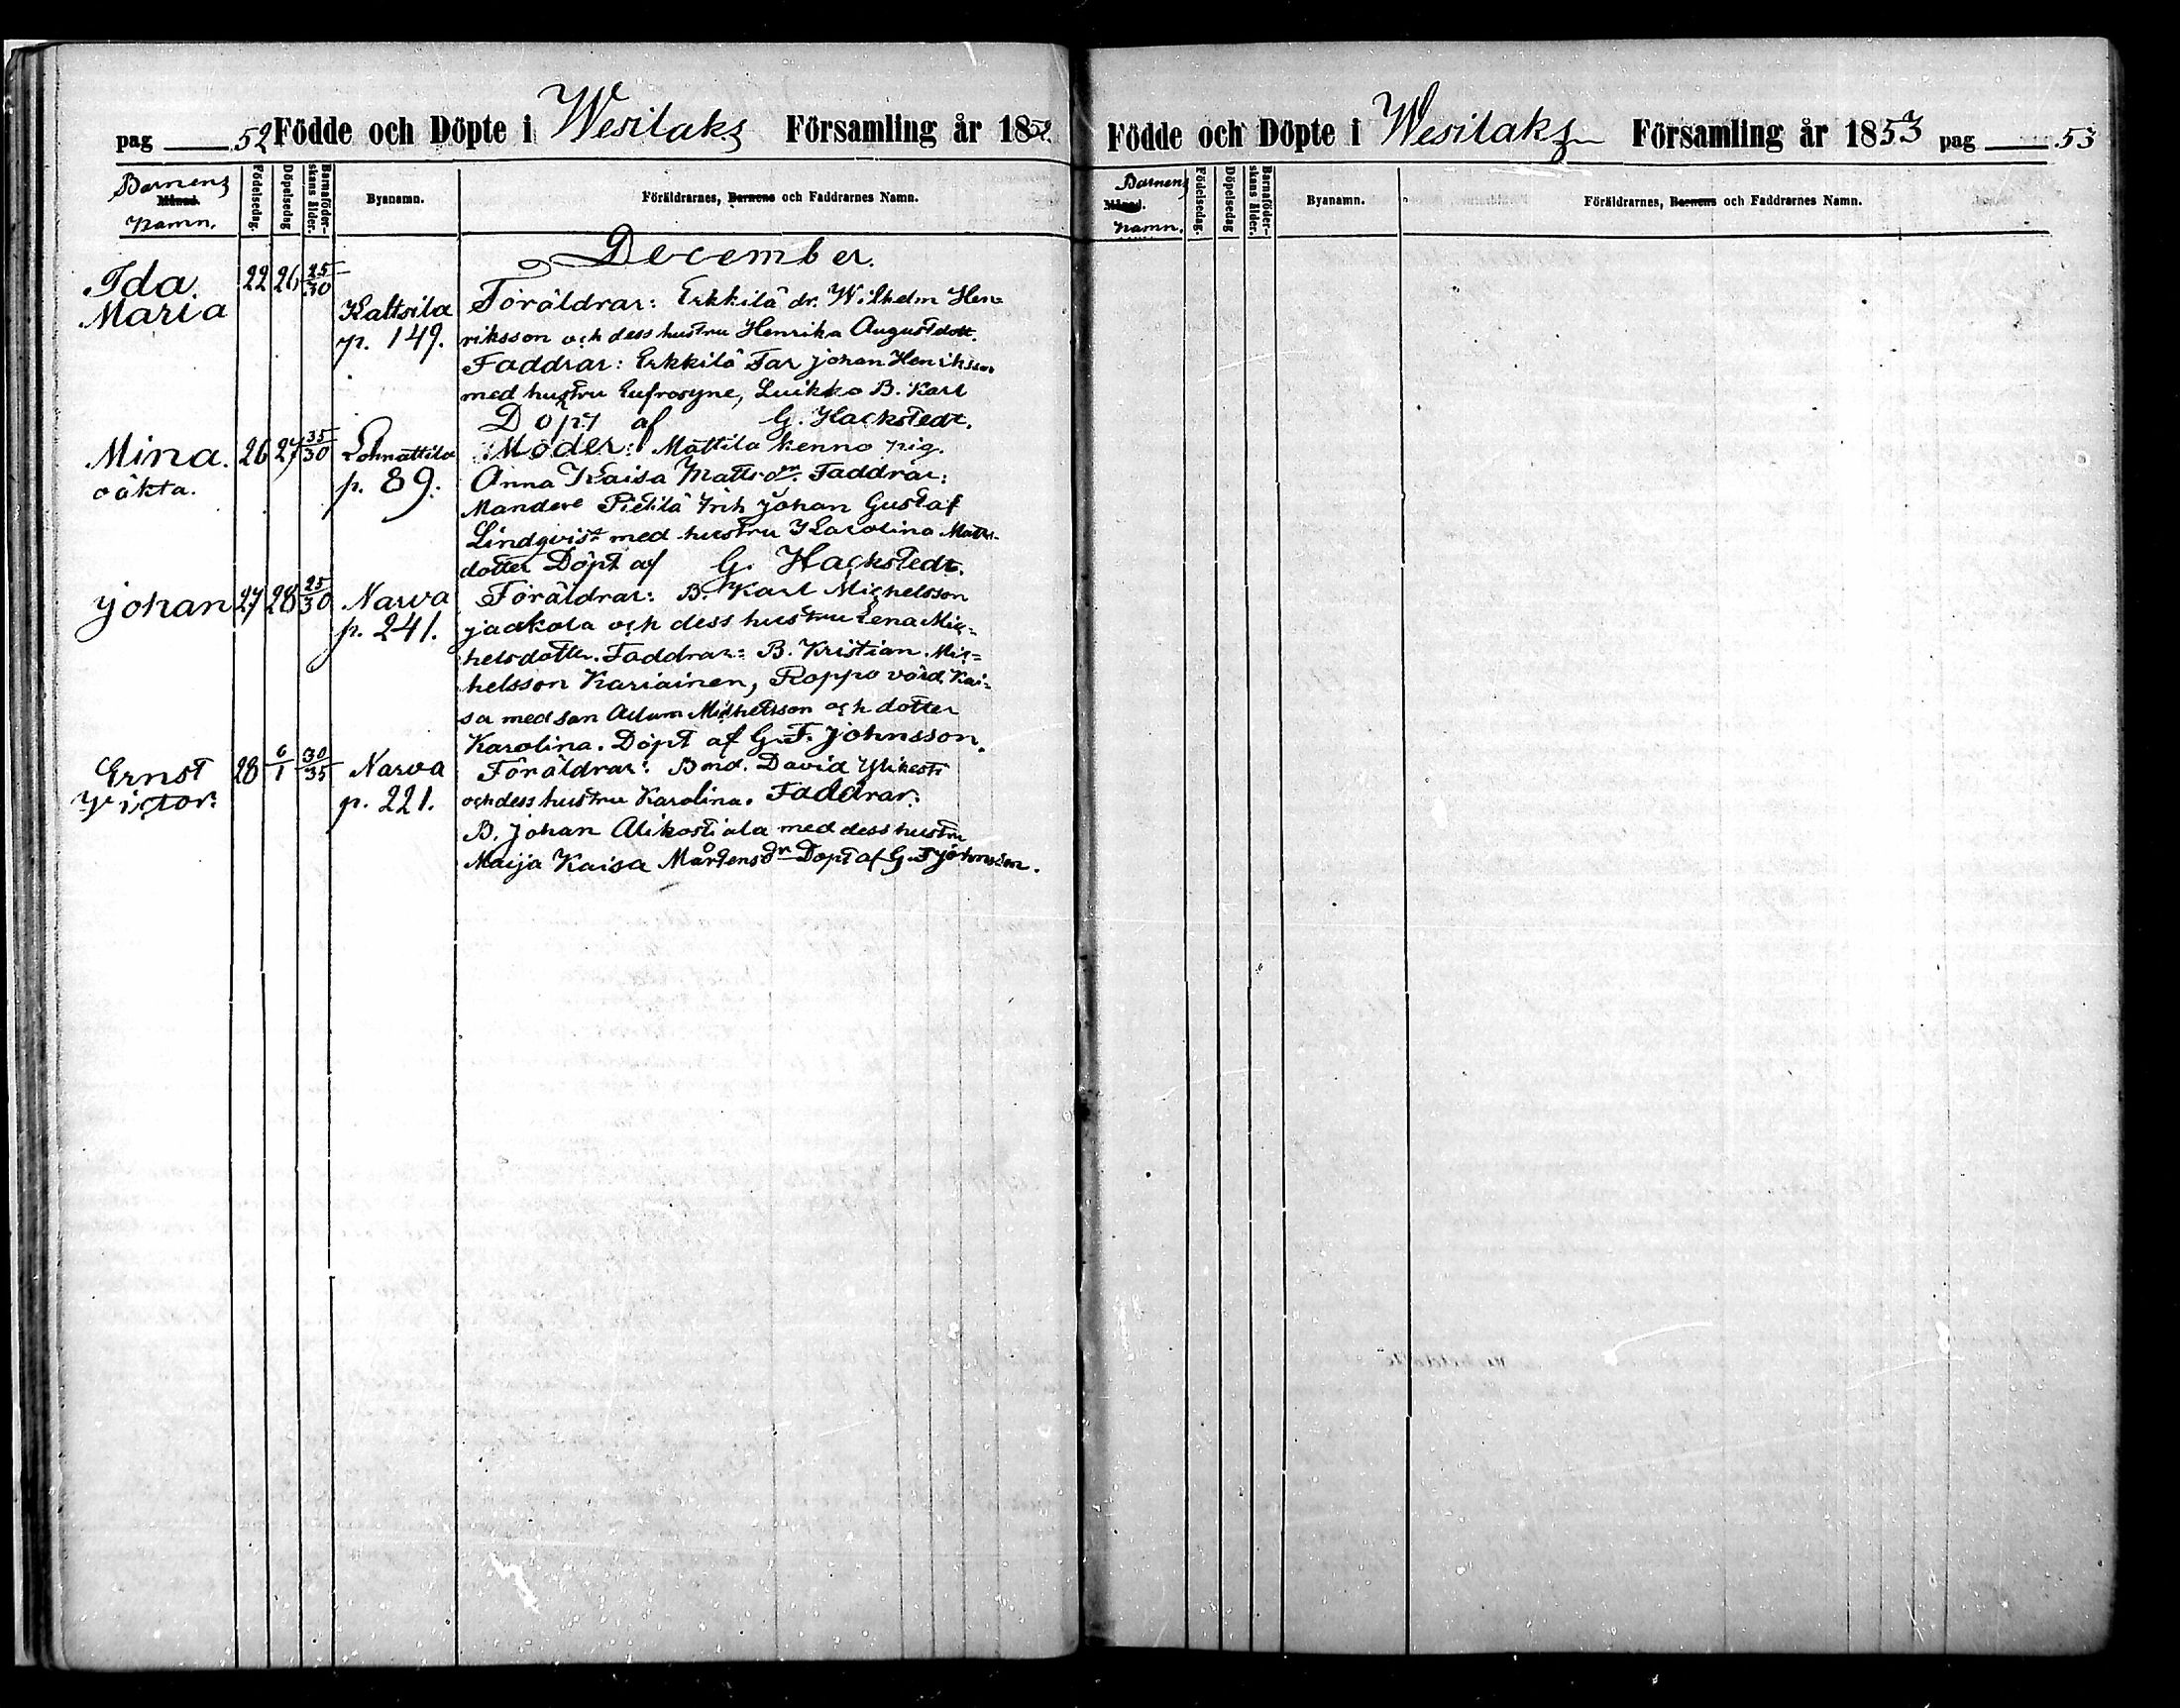 pag 52 Födde och Döpte i Wesilaks Församling år 1852
Barnens Månad. Namn. Födelsedag. Döpelsedag Barnaföderskans ålder. Byanamn. Föräldrarnes, Barnens och Faddrarnes Namn.
December.
Ida Maria 22 26 25/30 Kaltsila p. 149.
Föräldrar: Erkkilä dr. Wilhelm Hen=
riksson och dess hustru Henrika Augustdott.
Faddrar: Erkkilä Far Johan Henriksson
med hustru Eufrosyne, Luikko B. Karl
Döpt af G. Hackstedt.
Mina. oäkta. 26 27 35/30 p. 89.
Moder: Mattila Kenno pig.
Anna Kaisa Mattsdr. Faddrar:
Mandere Pietilä Inh Johan Gustaf
Lindqvist med hustru Karolina Matts-
dotter Döpt af G. Hackstedt.
Johan 27 28 25/30 Narva p. 241.
Föräldrar: B. Karl Michelsson
Jaakola och dess hustru Lena Mic=
helsdotter. Faddrar: B. Kristian Mic=
helsson Kariainen, Roppo värd. Kai=
sa med son Adam Michelsson och dotter
Karolina. Döpt af G.F. Johnsson.
Ernst Victor. 28 6/1 30/35 Narva p. 221.
Föräldrar: Bond. David Ylikosti
och dess hustru Karolina. Faddrar:
B. Johan Alikostiala med dess hustru
Maija Kaisa Mårtensdr Döpt af G.F Johnsson.
Födde och Döpte i Wesilaks Församling år 1853 pag 53
Barnens Månad. Namn. Födelsedag. Döpelsedag Barnaföderskans ålder. Byanamn. Föräldrarnes, Barnens och Faddrarnes Namn.